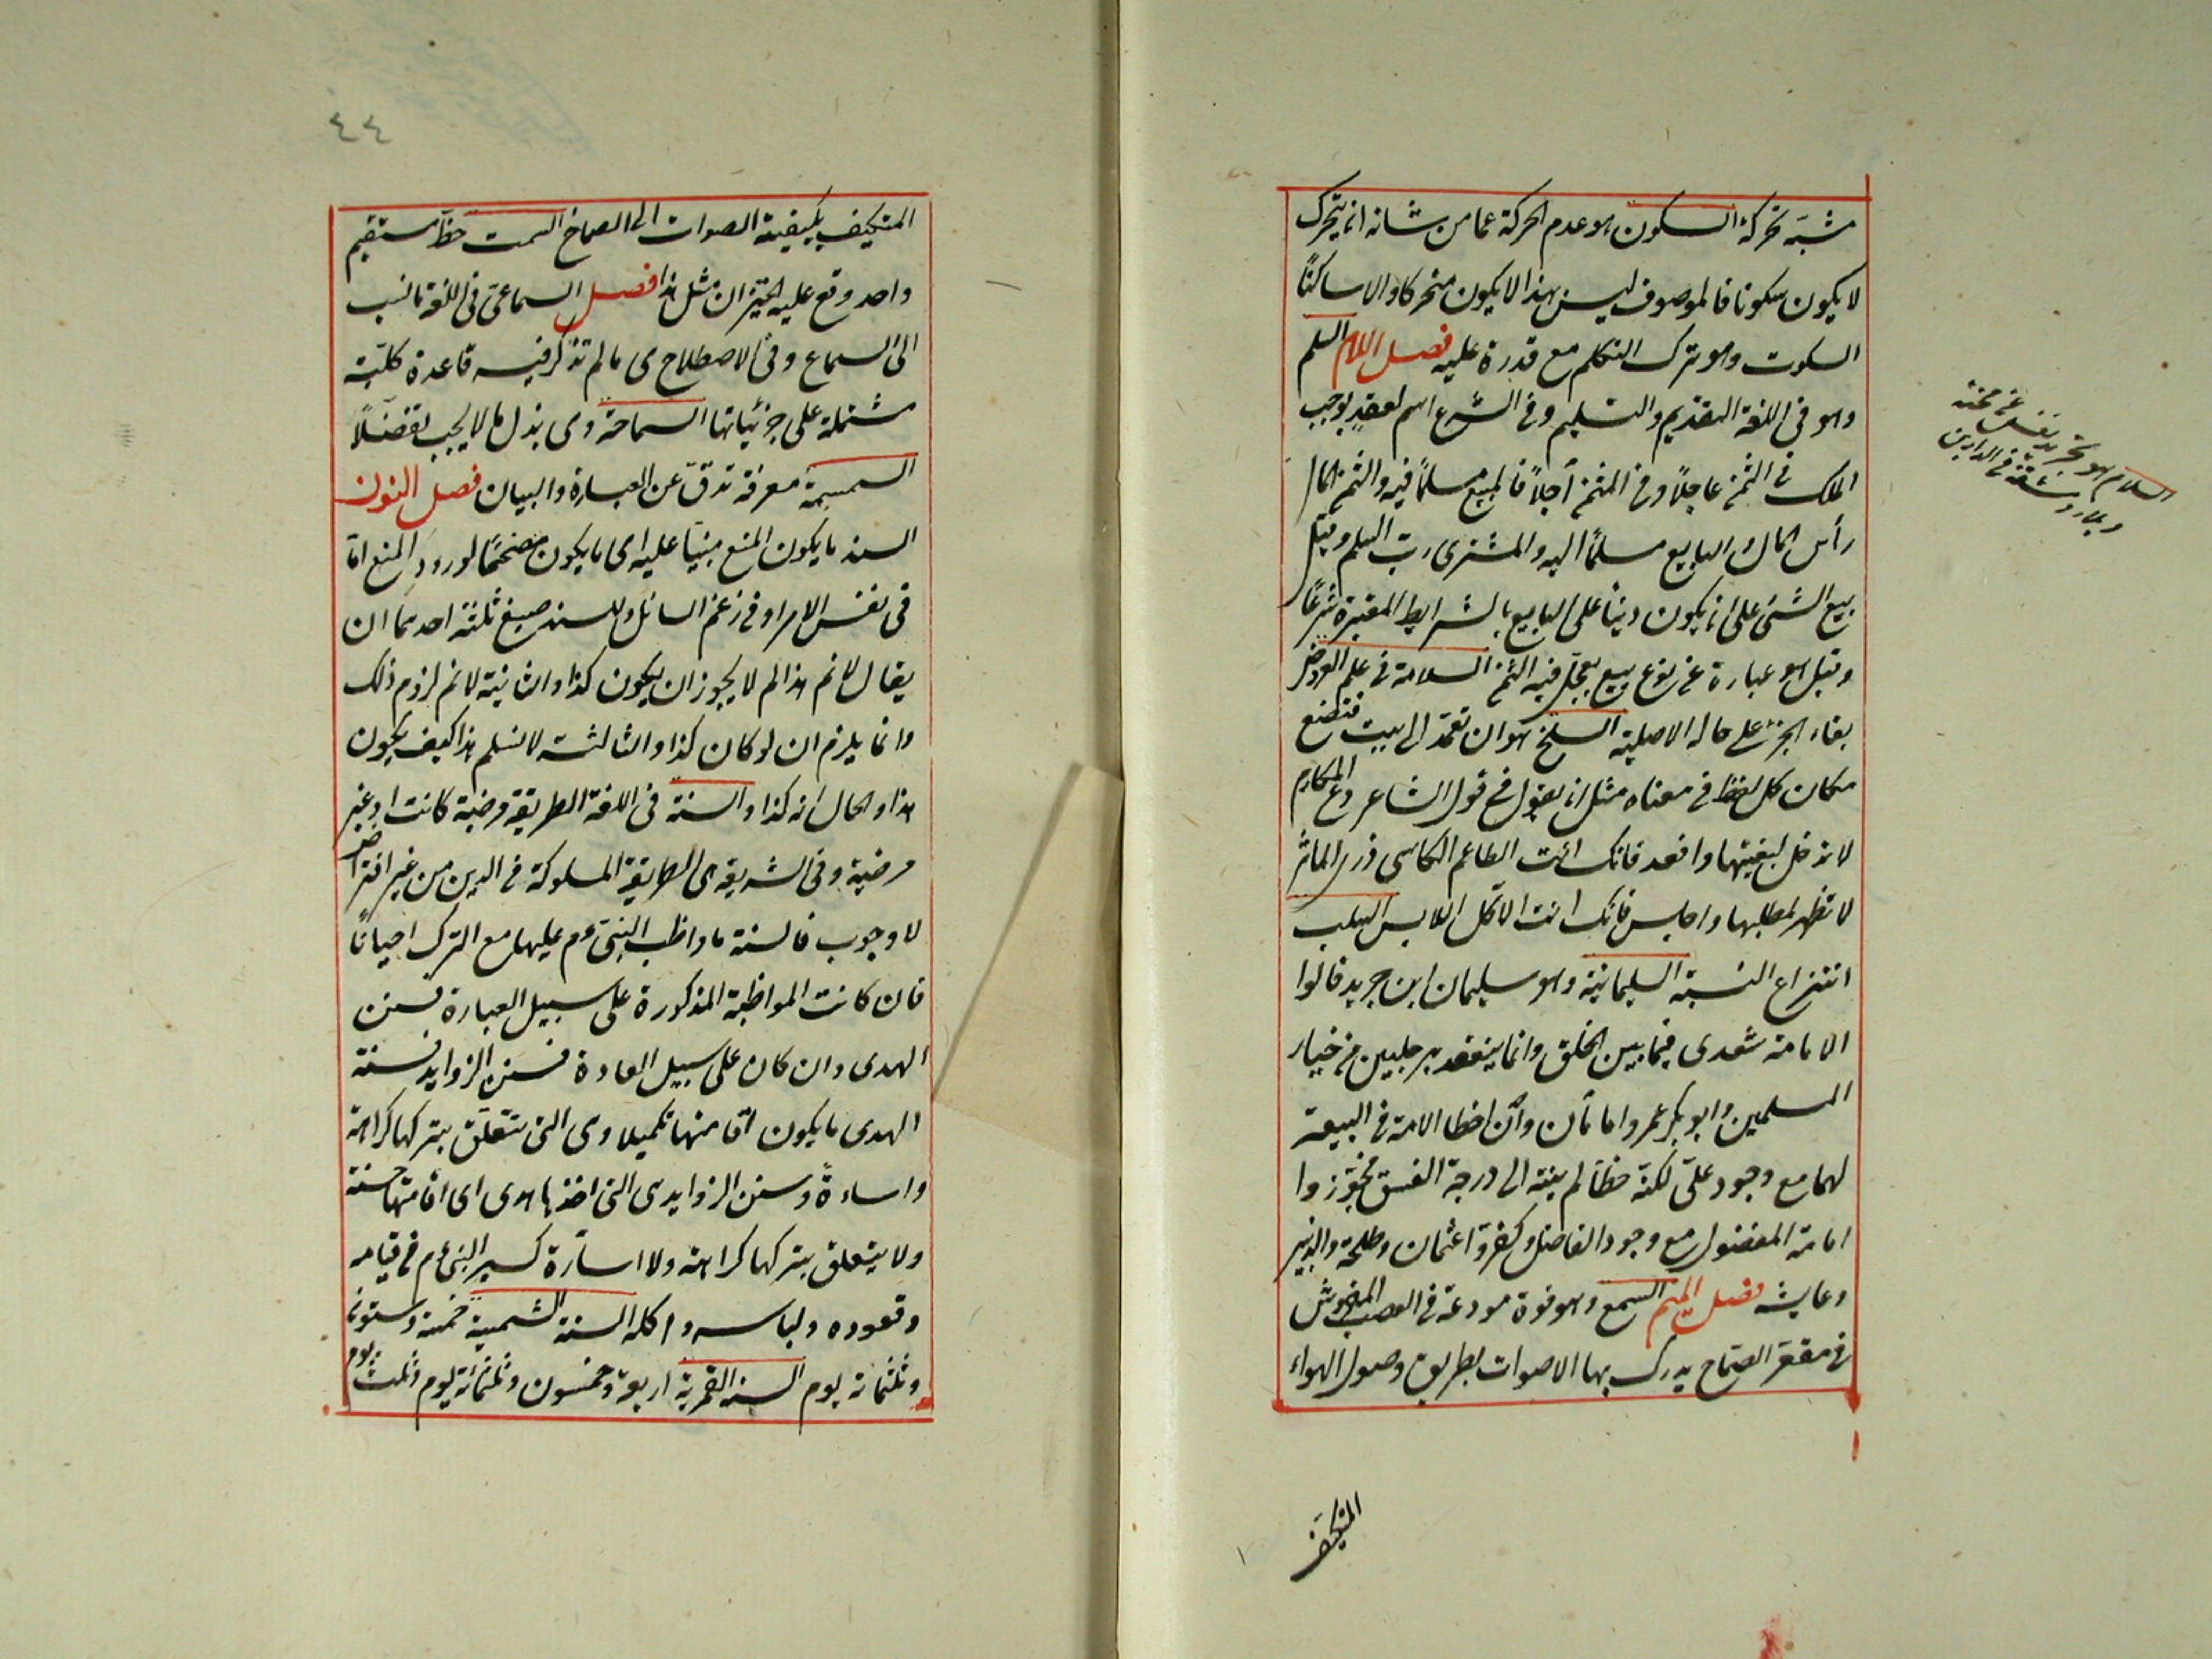 مشبّه تحركة السكون هو عدم الحركة عما من شانه ان يتحرك
لا يكون سكونا فالموصوف ليس بهذا لا يكون متحركا ولا ساكنًا
السكوت وهو ترك التكلم مع قدرة عليه فصل اللام السلم
وهو فى اللغة التقديم والتسليم وفى الشرع اسم لعقد يوجب
الملك فى الثمن عاجلاً وفى المثمن أجلاً فالمبيع مسلمًا فيه والثمن
رأس المال والبايع مسلمًا اليه والمشترى رب السلم وقيل
بيع الشئ على ان يكون دينًا على البايع بالشرايط المعتبرة شرعًا
وقيل هو عبارة عن نوع بيع يعجل فيه الثمن السلامة فى علم العروض
بقاء الجزء على حاله الاصلية السلخ هو ان تعمد الى بيت فتضع
مكان كل لفظ فى معناه مثل ان يقول فى قول الشاعر دع المكارم
لا ترحل لبغيتها واقعد فانك انت الطاعم الكاسى ذر المآثر
لا تظهر لمطلبها واجلس فانك انت الاكل اللابس السلب
انتزاع النسبة السليمانية وهو سليمان ابن جرير قالوا
الامامة شورى فيما بين الخلق وانما ينعقد برجلين من خيار
المسلمين وابو بكر وعمر امامان وان اخطا الامة فى البيعة
لهما مع وجود على لكنه خطأ لم ينته الى درجة الفسق فجوزوا
امامة المفضول مع وجود الفاضل وكفروا عثمان وطلحة والزبير
وعايشه فصل الميم السمع وهو قوة مودعة فى العصب المفروش
فى مقعر الصماخ يدرك بها الاصوات بطريق وصول الهواء
المتكيف
السلام هو تجرد النفس عن محنة
فى الدارين
المتكيف بكيفية الصوات الى الصماخ السمت خط مستقيم
واحد وقع عليه الحيزان مثل هذا فصل السماعى فى اللغة ما نسب
الى السماع وفى الاصطلاح هى ما لم تذكر فيه قاعدة كلية
مشتملة على جزئياتها السماحة وهى بذل ما لا يجب تفضلاً
السمسمة معرفة تدق عن العبارة والبيان فصل النون
السند ما يكون المنع مبنيًا عليه اى ما يكون مصححًا لورود المنع اما
فى نفس الامر او فى زعم السائل وللسند صيغ ثلثة احديهما ان
يقال لا نم هذا لم لا يجوز ان يكون كذا والثانية لا نم لزوم ذلك
وانما يلزم ان لو كان كذا والثالثة لا نسلم هذا كيف يكون
هذا والحال انه كذا والسنة فى اللغة الطريقة مرضية كانت او غير
مرضية وفى الشريعة هى الطريقة المسلوكة فى الدين من غير افتراض
لا وجوب فالسنة ما واظب النبى عم عليها مع الترك احيانًا
فان كانت المواظبة المذكورة على سبيل العبارة فسنن
الهدى وان كان على سبيل العادة فسنن الزوايد فسنة
الهدى ما يكون اقامتها تكميلا وهى التى تتعلق بتركها كراهة
واساءةً وسنن الزوايد هى التى اخذها هدى اى اقامتها حسنة
ولا يتعلق بتركها كراهة ولا اساءة كسير النبى عم فى قيامه
وقعوده ولباسه واكله السنة الشمسية خمسة وستون
وثلثمائة يوم السنة القمرية اربعة وخمسون وثلثمائة يوم وثلث يوم
٤٤